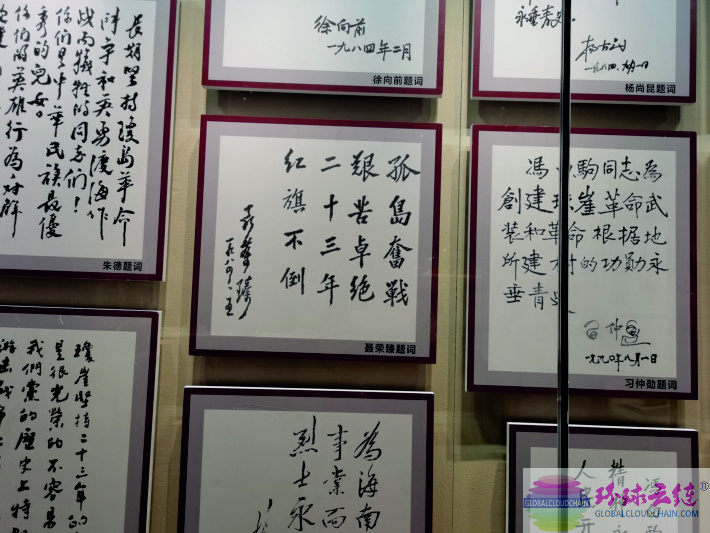 長期坚持琼島革命
鬥争和英勇渡海作
战而牺牲的同志们！
你们是中华民族最優
秀的兒女。
你们的英雄行为
朱德题词
徐向前
一九八四年二月
徐向前题词
永垂青史。
杨尚昆题词
孤島奮戰
艱苦卓绝
二十三年
红旗不倒
聂荣臻
聂荣臻题词
馮白駒同志為
創建琼崖革命武
装和革命根据地
所建树的功勋永
垂青史
习仲勋
一九九〇年八月一日
习仲勋题词
瓊崖坚持二十三年的
是很光荣的不容易
我們党的歷史上特
為海南
事業而
烈士永
精神永
人民
环球云链®
GLOBALCLOUDCHAIN.COM
GLOBALCLOUDCHAIN.COM